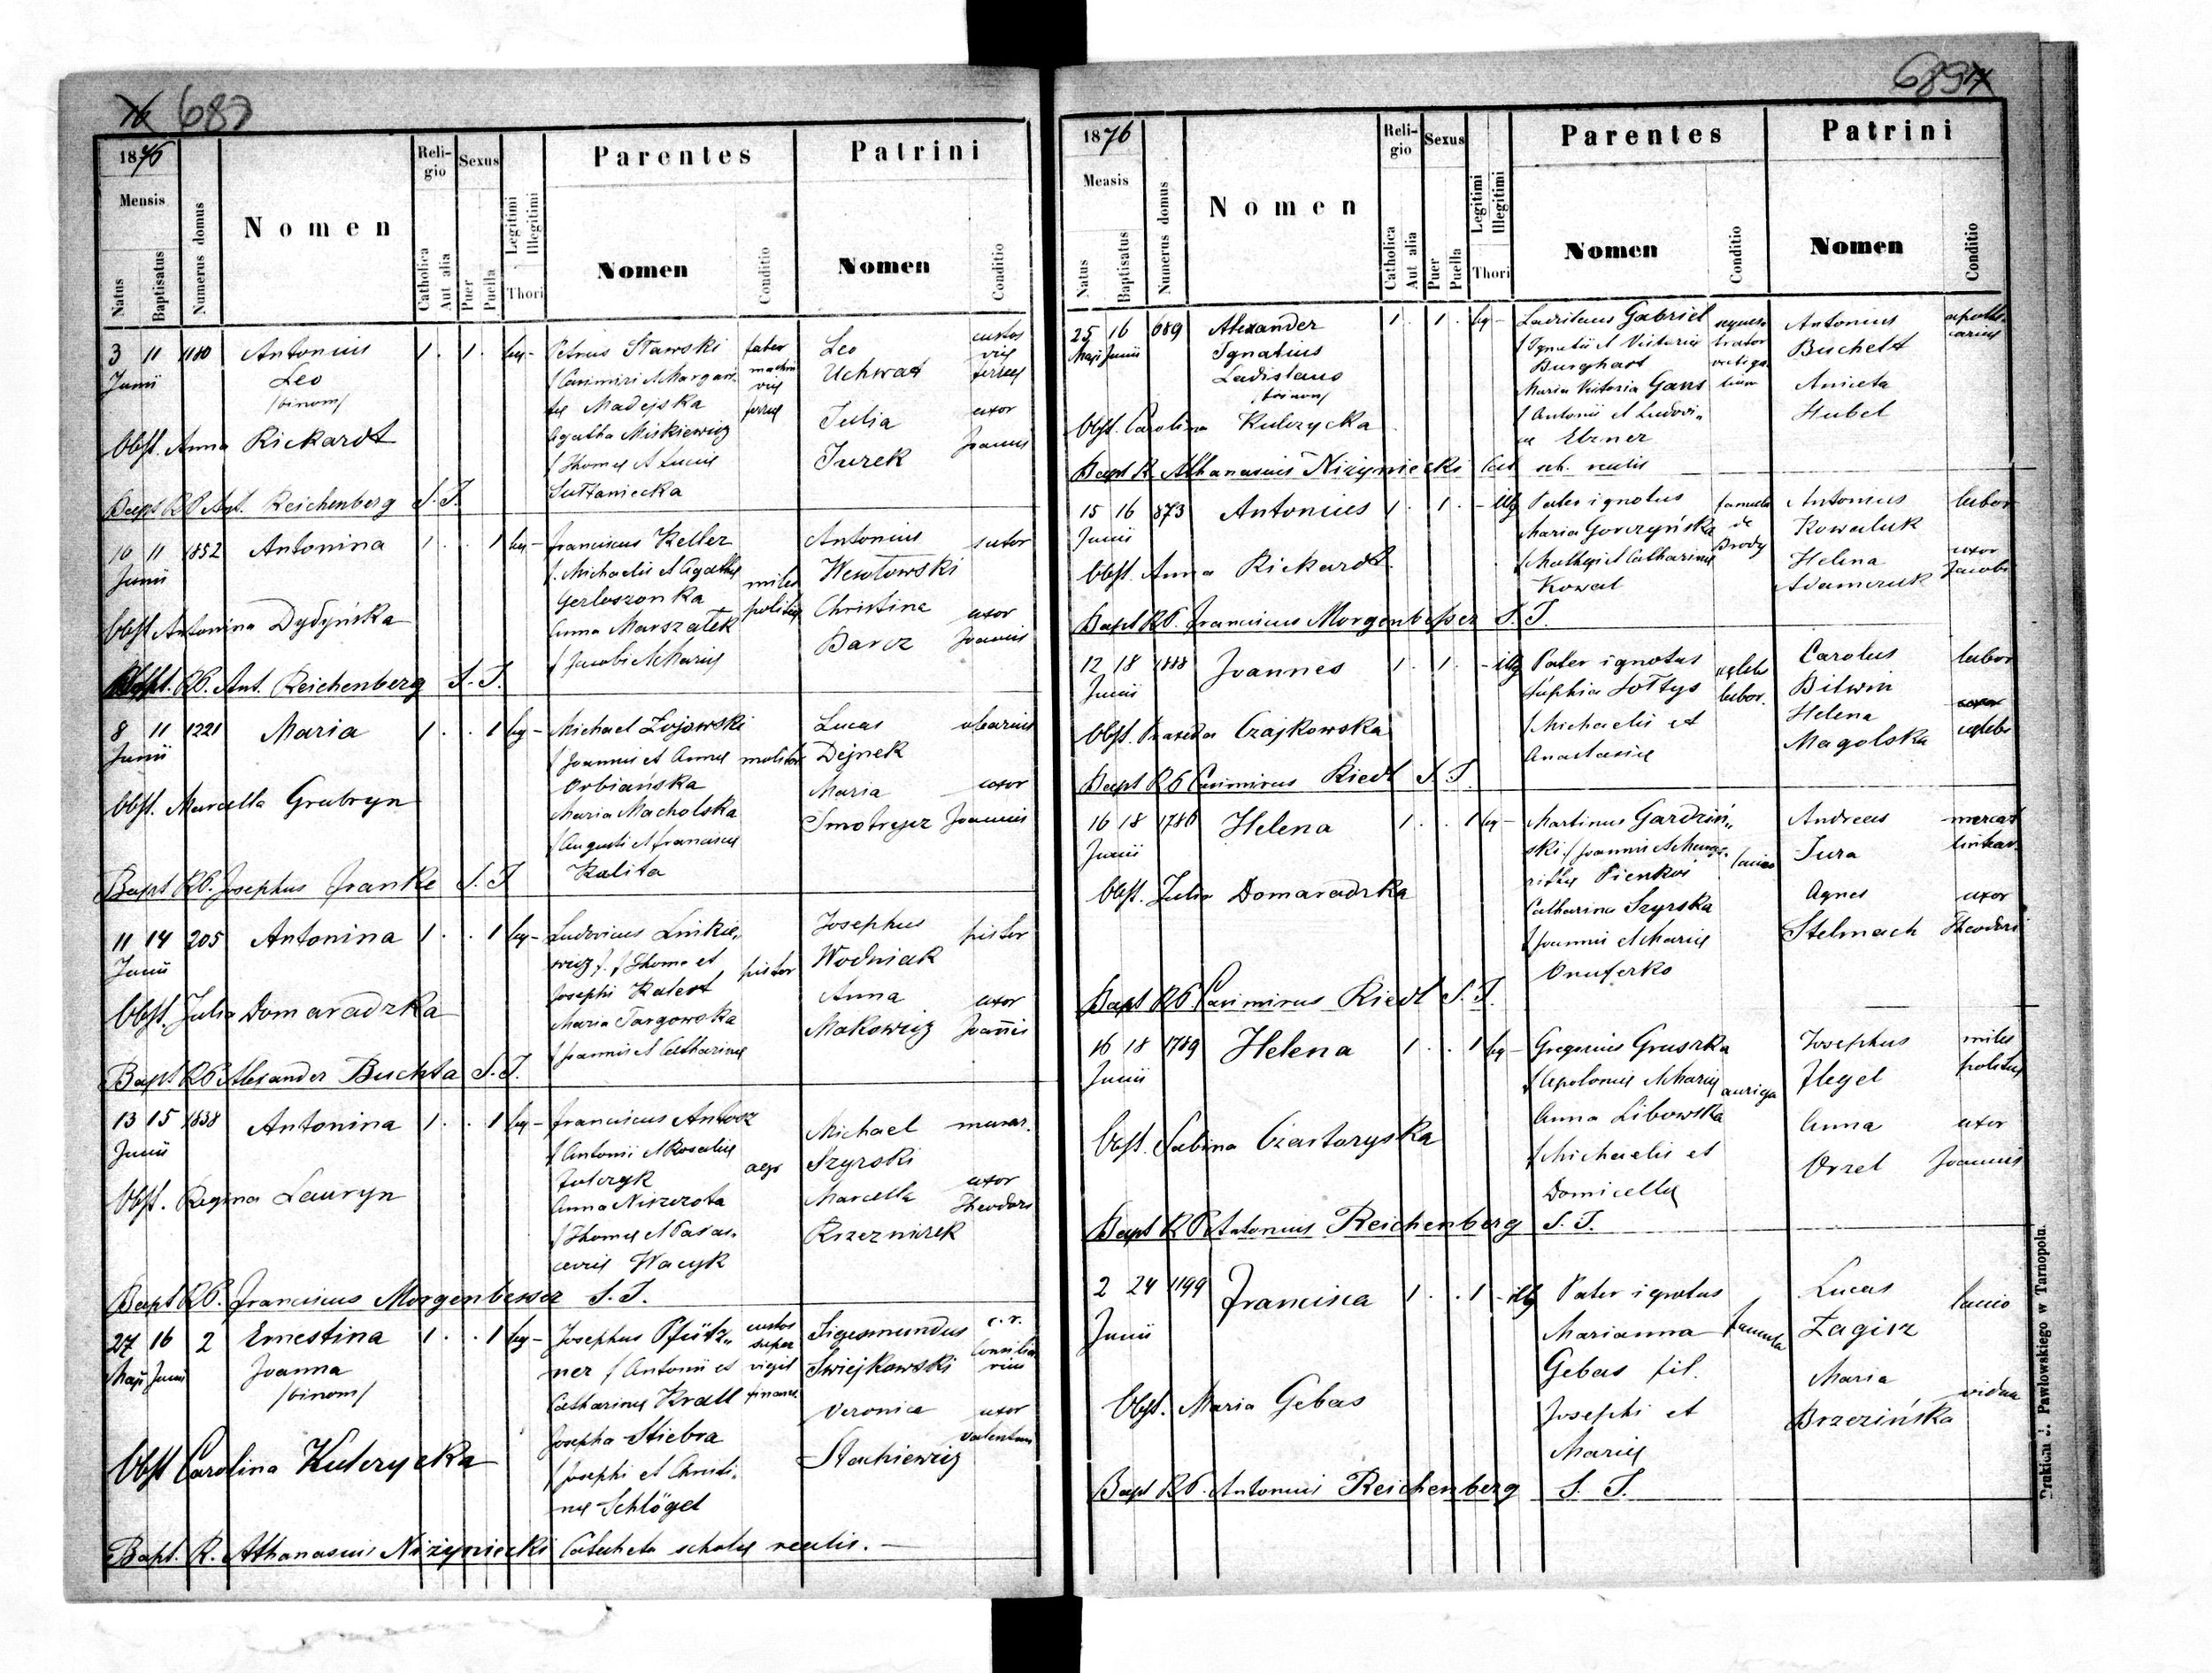 687
1876
Mensis
Natus
Baptisatus
Numerus domus
Nomen
Religio
Catholica
Aut alia
Sexus
Puer
Puella
Legitimi
Illegitimi
Thori
Parentes
Nomen
Conditio
Patrini
Nomen
Conditio
3 11 1180 Antonius 1. 1. leg- Petrus Stawski Leo custos
Junii Leo Uchwat viæ ferreæ
/binom/ Madejska Julia uxor
Agatha Miśkiewicz Jurek Joannis
Obst. Anna Rickardt
Sułtaniecka
Bapt RP Ant. Reichenberg S.J.
10 11 1852 Antonina 1. . 1 leg- Franciscus Keller Antonius sutor
Junii f. Michaelis et Agathæ miles
Gerloszonka politiæ Christina uxor
Anna Marszałek Barcz Joannis
f Jacobi et Mariæ
Obst Antonina Dydyńska
Obst. RP. Ant. Reichenberg S.J.
8 11 1221 Maria 1. . 1 leg- Michael Zojowski Lucas
Junii f Joannis et Annæ molitor Dejnek
Orbiańska Maria uxor
Maria Macholska Smotrycz Joannis
f Augusti et Franciscæ
Kalita
Obst. Marcella Grabryn
Bapt RP. Josephus Franke S.J
11 14 205 Antonina 1. . 1 leg- Ludovicus Linkie„ Josephus pistor
Junii wicz f. f Thoma et pistor Wodniak
Josephi Kalert Anna uxor
Maria Targowska Makowicz Joannis
f Joannis et Catharinæ
Obst. Julia Domaradzka
Bapt RP Alexander Buchta S.J.
13 15 1838 Antonina 1. . 1 leg- Franciscus Antosz Michael murar.
Junii f Antonii et Rosaliæ Szyrski
Anna Niszczota Marcella uxor Theodori
f Thomæ et Paras„ Krzeznirek
ceviæ Wacyk
Obst. Regina Lauryn
Bapt RP. Franciscus Morgenbesser S.J.
27 16 2 Ernestina 1. . 1 leg- Josephus Pfütz„ custos Sigesmundus c.r.
Maji Junii Joanna ner f Antonii et super Swiejkowski Consiliarius
/binom/ Catharinæ Krall vigil finanz Veronica uxor
Josepha Stiebra Stachiewicz Valentini
f Josephi et Christi„
næ Schlögel
Obst Carolina Kulczycka
Bapt. R. Athanasius Niżyniecki Catecheta scholæ realis.
689
1876
Measis
Natus
Baptisatus
Numerus domus
Nomen
Religio
Catholica
Aut alia
Sexus
Puer
Puella
Legitimi
Illegitimi
Thori
Parentes
Nomen
Conditio
Patrini
Nomen
Conditio
25 16 689 Alexander 1. 1. leg- Ladislaus Gabriel Antonius apothe„
Maji Junii Ignatius f Ignatii et Victoriæ Buchelt carius
Ladislaus Burghart Aniceta
Maria Victoria Gans Hubel
f Antonii et Ludovi„
cæ Elzner
Obst. Carolina Kulczycka
Bapt R. Athanasius Niżyniecki Cat. sch. realis
15 16 873 Antonius 1. 1. - illg Pater ignotus famula Antonius labor
Junii Maria Gorczyńska de Brody Kowaluk
f Mathæi et Catharinæ Helena uxor
Kowal Adamczuk Jacobi
Obst. Anna Rickardt.
Bapt RP. Franciscus Morgenbesser S.J.
12 18 1888 Joannes 1. 1. - illg Pater ignotus cælebs Carolus labor
Junii Sophia Sołtys labor. Bilwin
f Michaelis et Helena
Anastasiæ Magolska cælebs
Obst. Praxeda Czajkowska
Bapt RP Casimirus Riedl S.J
16 18 1786 Helena 1. . 1 leg- Martinus Gardziń„ Andreas mercat
Junii ski f Joannis et Marga„ Jura
ritæ Pieńkoś Agnes uxor
Catharina Szyrska Stelmach Theodori
f Joannis et Mariæ
Onuferko
Obst. Julia Domaradzka
Bapt RP. Casimirus Riedl S.J.
16 18 1789 Helena 1. . 1 leg- Gregorius Gruszka Josephus miles
Junii f Apoloniæ et Mariæ auriga Flegel politiæ
Anna Libowska Anna uxor
f Michaelis et Orzel Joannis
Domicellæ
Obst. Sabina Czartoryska
Bapt RP Antonius Reichenberg S.J.
2 24 1199 Francisca 1. . 1 - illg Pater ignotus Lucas
Junii Marianna famula Zagicz
Gebas fil. Maria vidua
Josephi et Brzezińska
Mariæ
Obst. Maria Gebas
Bapt RP. Antonius Reichenberg S.J.
Drukiem J. Pawłowskiego w Tarnopolu.